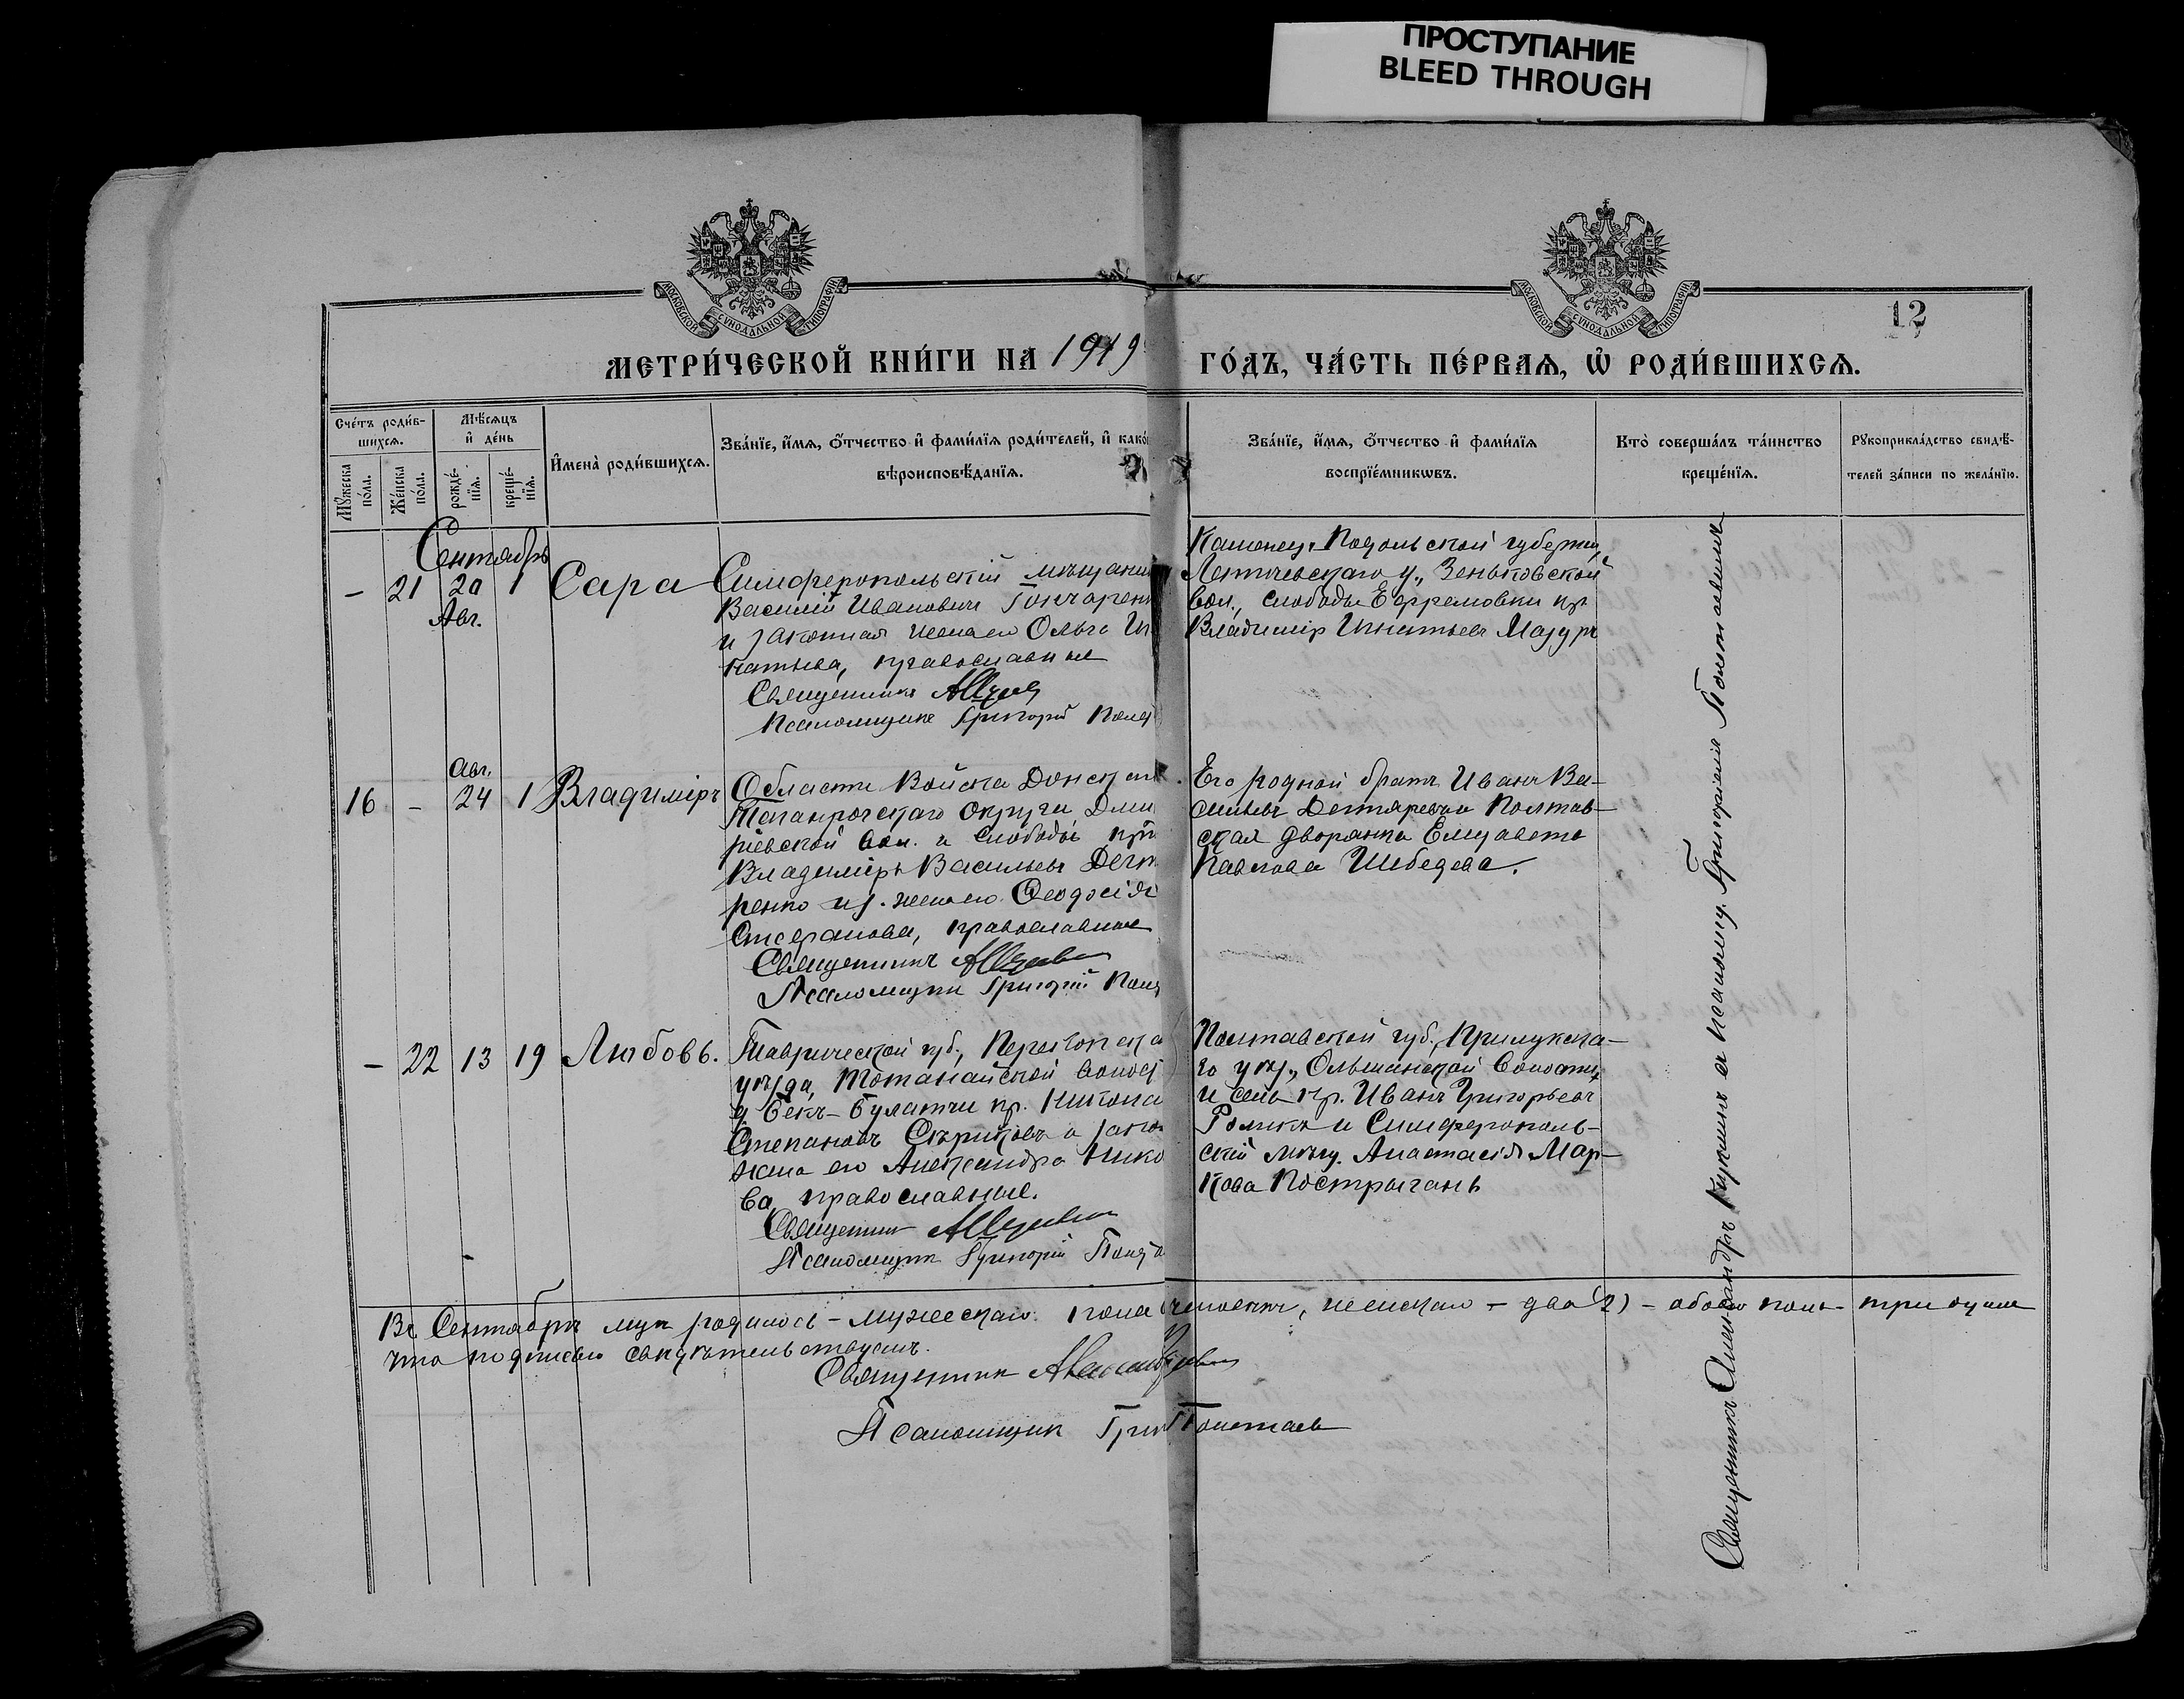 ПРОСТУПАНИЕ
BLEED THROUGH
МОСКОВСКОЙ СУНОДАЛЬНОЙ ТИПОГРАФІИ
МОСКОВСКОЙ СУНОДАЛЬНОЙ ТИПОГРАФІИ
12
МЕТРИ́ЧЕСКОЙ КНИ́ГИ НА 1919 ГО́ДЪ, ЧА́СТЬ ПЕ́РВАѦ, Ѡ҆ РОДИ́ВШИХСѦ.
Сче́тъ роди́в-
шихсѧ.
Мꙋ́жеска
по́ла.
Же́нска
по́ла.
Мѣ́сѧцъ
и҆ де́нь
рожде́-
нїѧ.
креще́-
нїѧ.
И҆мена̀ роди́вшихсѧ.
Зва́нїе, и҆́мѧ, ѻ҆́тчество и҆ фами́лїѧ роди́телей, и҆ како́
вѣроисповѣ́данїѧ.
Зва́нїе, и҆́мѧ, ѻ҆́тчество и҆ фами́лїѧ
воспрїе́мникѡвъ.
Кто̀ соверша́лъ та́инство
креще́нїѧ.
Рꙋкоприкла́дство свидѣ́-
телей за́писи по жела́нїю.
Сентябрь
- 21 20 1 Сара
Авг.
Симферопольскій мѣщани
Василій Ивановичъ Гончарен
и законная жена его Ольга Иг
натьева, православные
Священникъ
Псаломщикъ Григорій Полт
Каменец-Подольской губерніи,
Летичевскаго у., Зеньковской
вол., слободы Ефремовки кр.
Владиміръ Игнатьевъ Мазуръ
16 - Авг. 24 1 Владиміръ
Области Войска Донскаго
Таганрогскаго Округа, Дми
ріевской вол. и слободы кр
Владиміръ Васильевъ Дегт
ренко и з. жена его Ѳеодосія
Стефанова, православные
Священникъ
Псаломщикъ Григорій Полт
Его родной братъ Иванъ Ва-
сильевъ Дегтяренко и Полтав-
ская дворянка Елизавета
Павлова Шебедева.
- 22 13 19 Любовь.
Таврической губ., Перекопска
уѣзда, Тотанайской волос
д. Бекъ-Булатчи кр. Никола
Степановъ Скриковъ и закон
жена его Александра Нико
ва, православные.
Священникъ
Псаломщикъ Григорій Полта
Полтавской губ., Прилукска-
го уѣз., Ольшанской волости
и села кр. Иванъ Григорьевъ
Ромкъ и Симферополь-
ская мѣщ. Анастасія Мар-
кова Кострыгань
Въ Сентябрѣ мцѣ родилось - мужескаго пола человѣкъ, женскаго - два (2) - обоего пола - три души
что подписью свидѣтельствуемъ.
Священникъ
Псаломщикъ Гри Полтаев
Священникъ Александръ Кукминъ и псаломщ. Григорій Полтаевъ